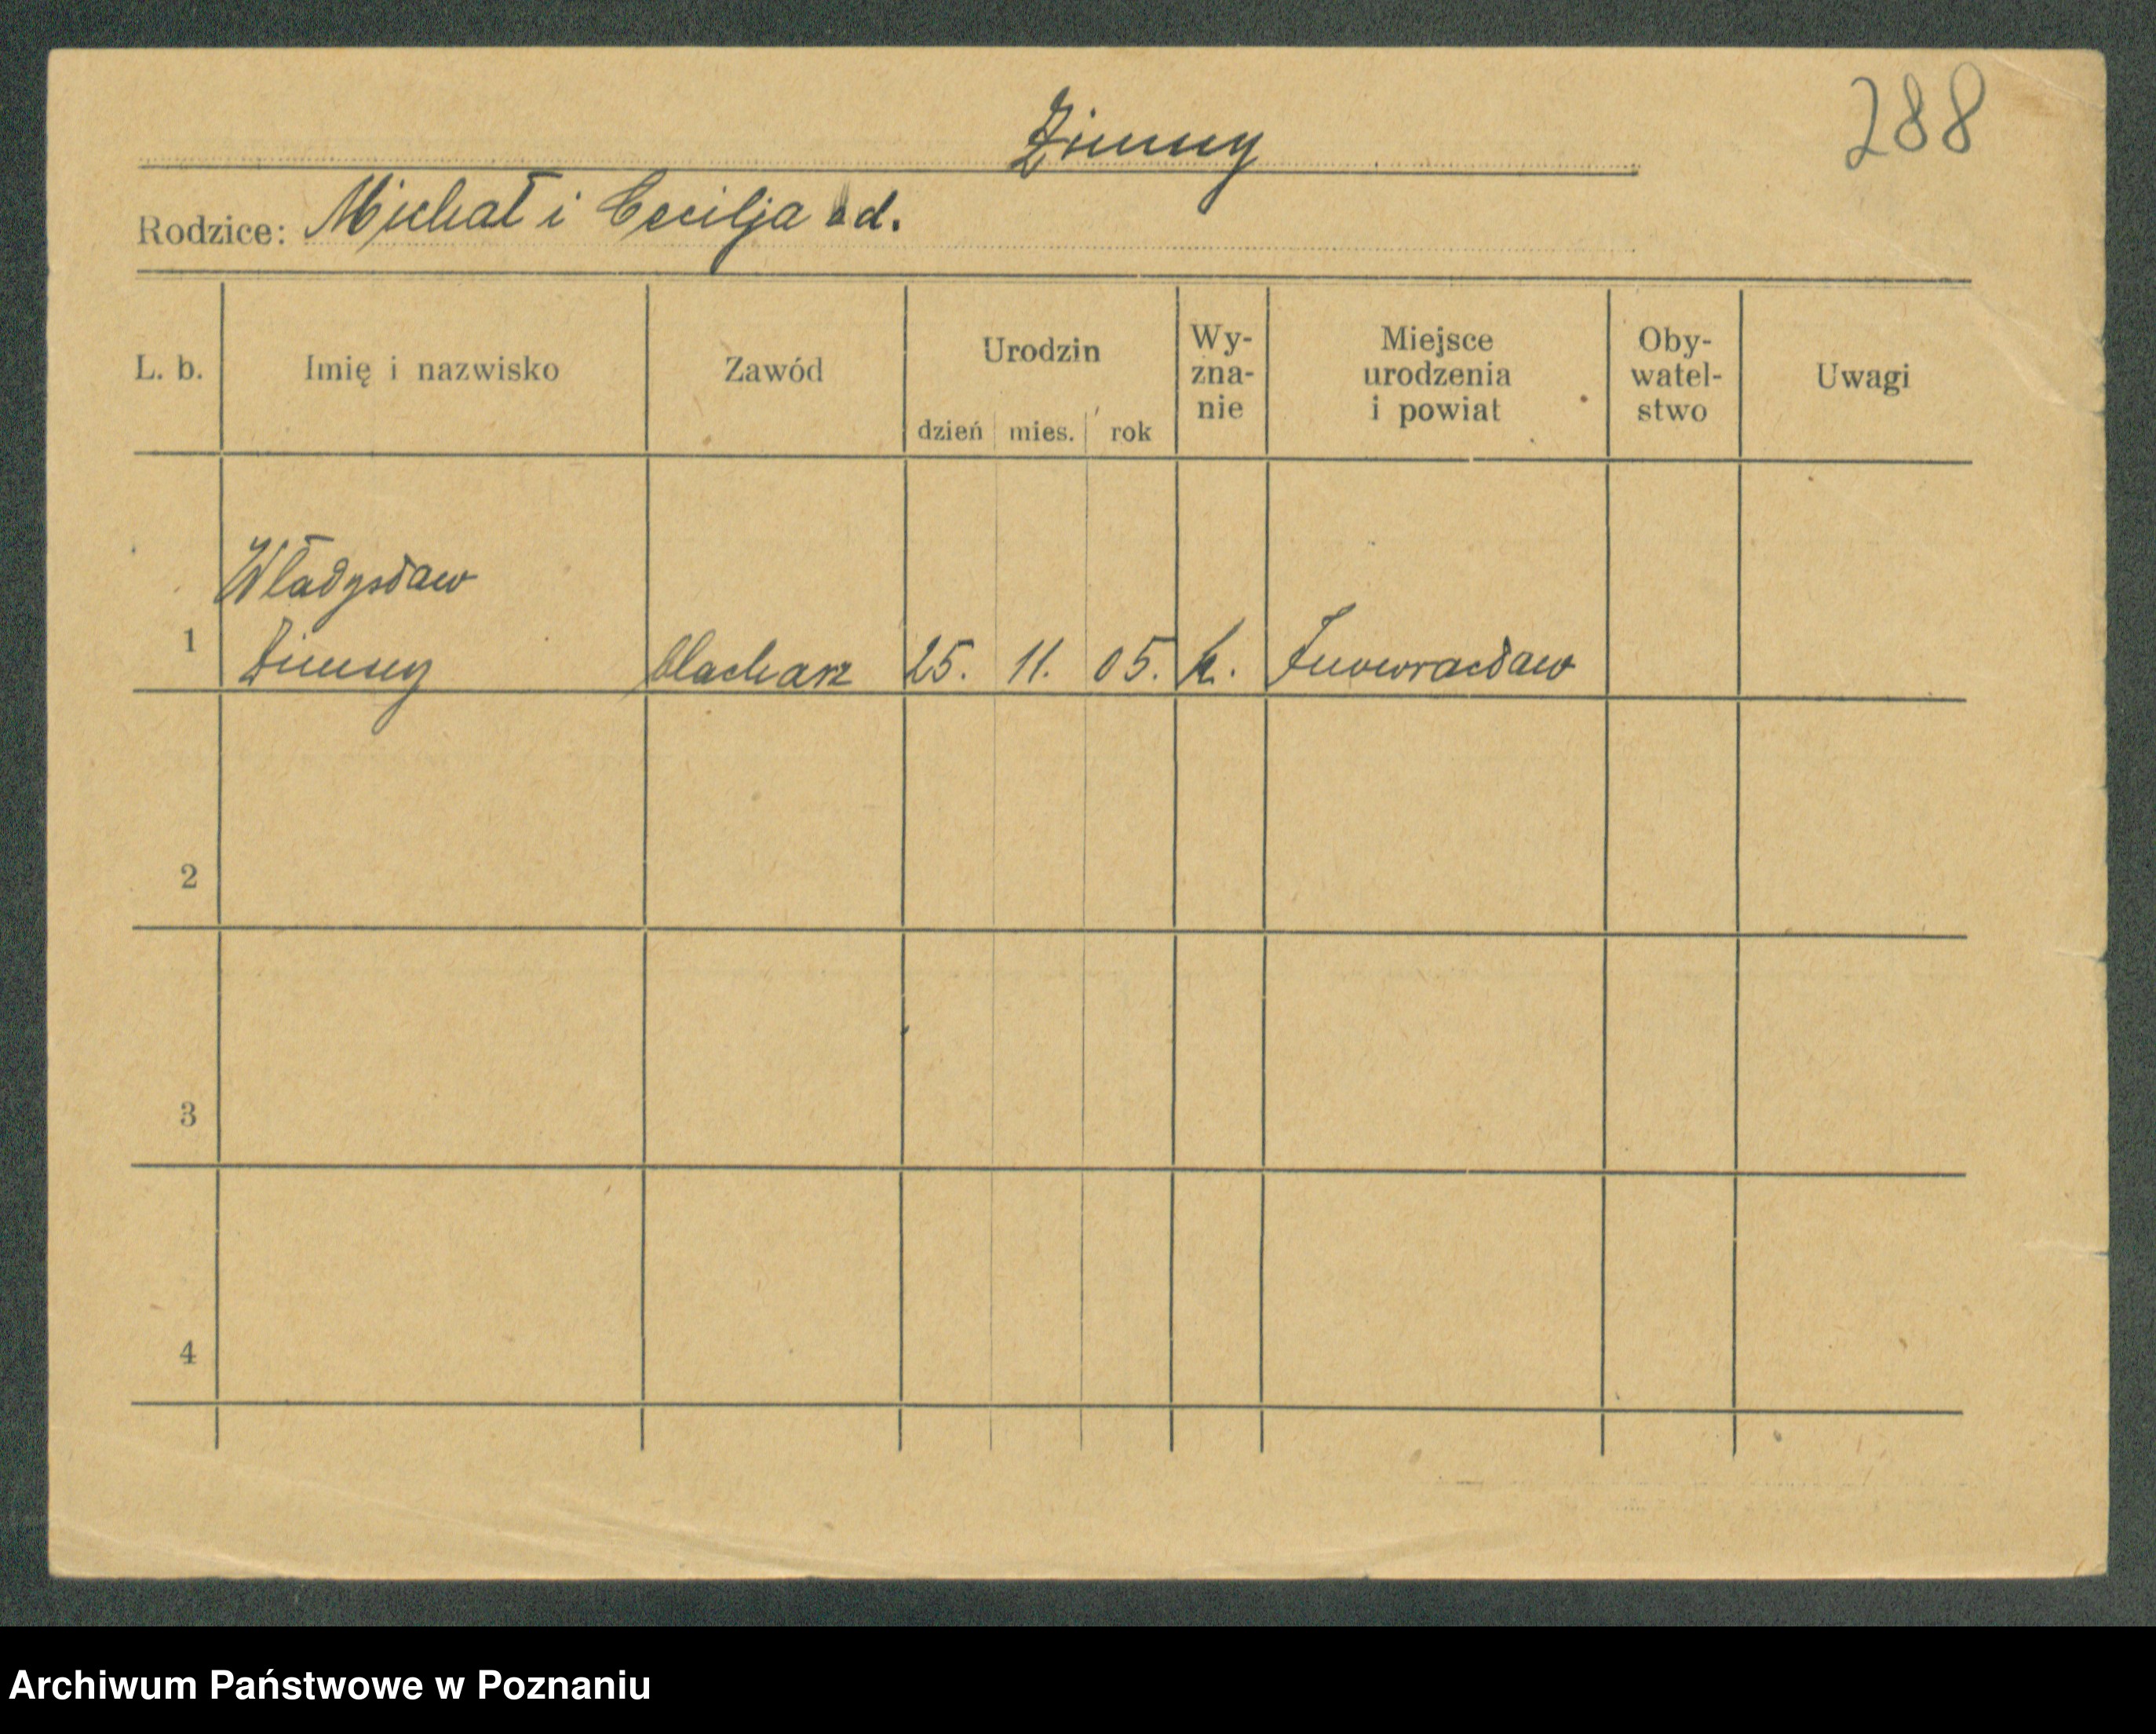 288
Zimny
Rodzice: Michał i Cecilja od.
L. b. Imię i nazwisko Zawód Urodzin dzień mies. rok Wy-zna-nie Miejsce urodzenia i powiat Oby-watel-stwo Uwagi
Władysław
1 Zimny blacharz 25. 11. 05. k. Inowrocław
2
3
4
Archiwum Państwowe w Poznaniu